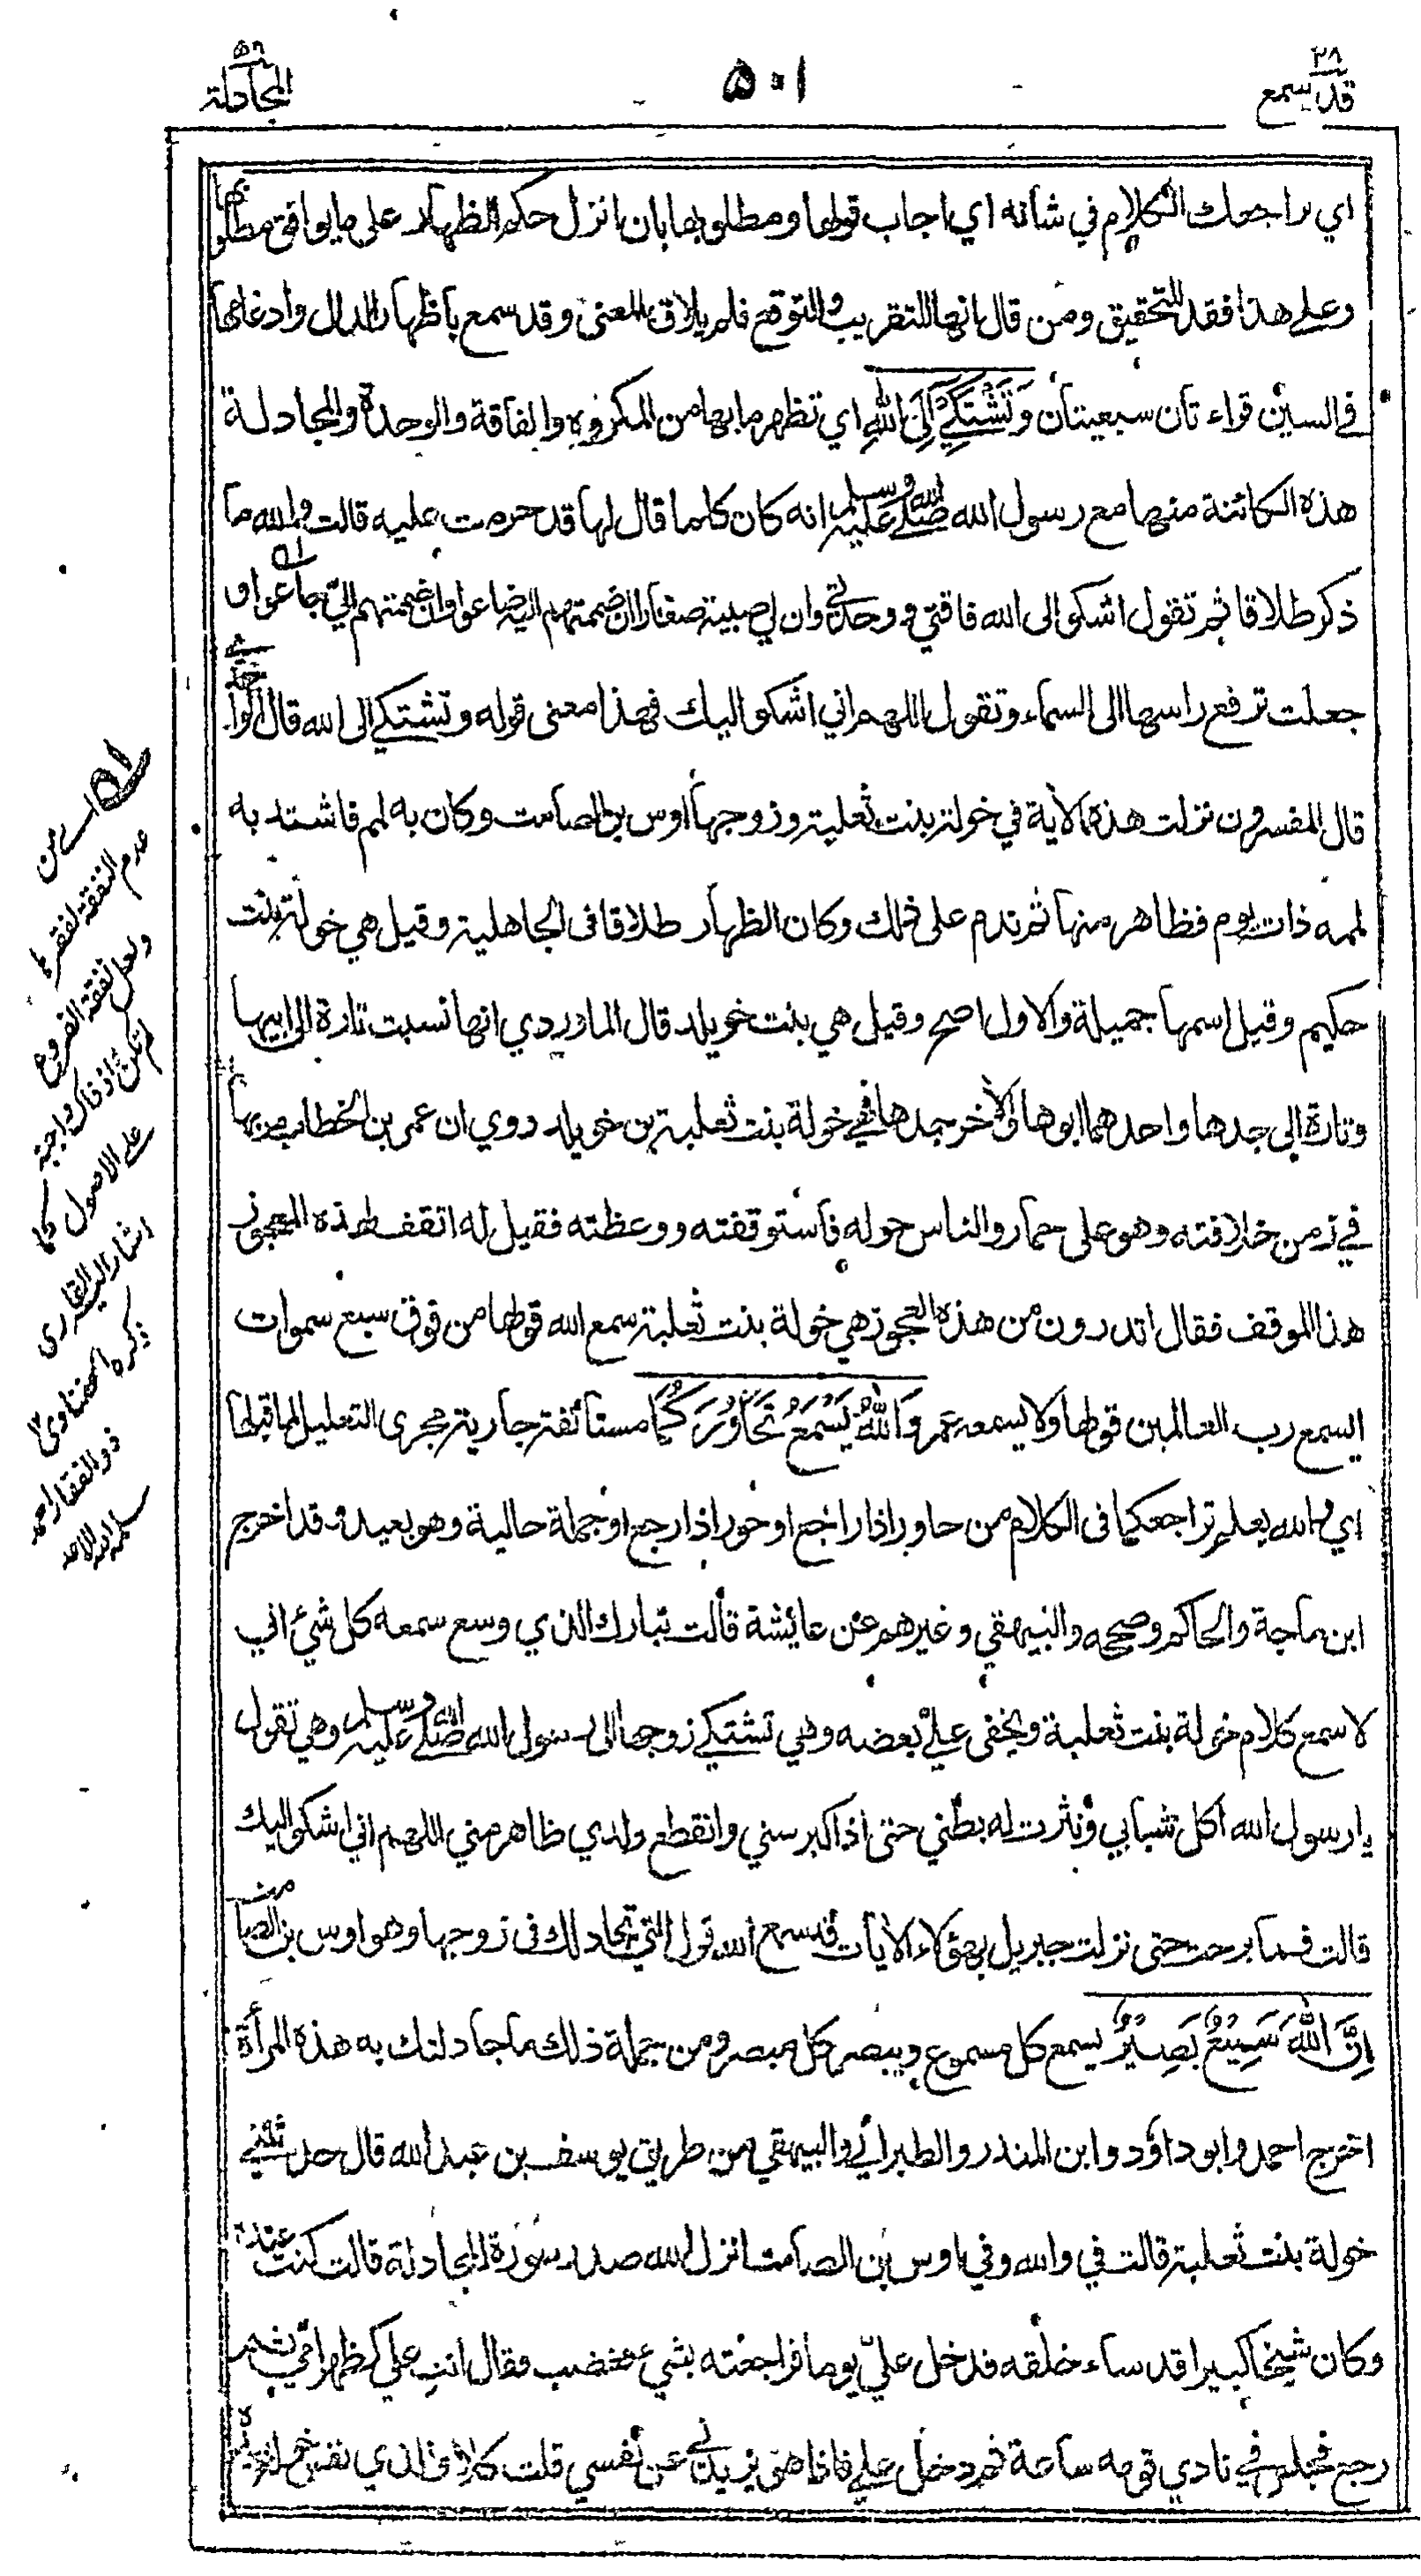 ٢٨ قد سمع
٥٠١
٥٨ المجادلة
اي يراجعك الكلام في شانه اي اجاب قولها ومطلوبها بان انزل حكم الظهار على ما يوافق مطلوبها
وعلى هذا فقد للتحقيق ومن قال انها للتقريب والتوقع فلم يلاق المعنى وقد سمع باظهار الدال وادغامها
في السين قراءتان سبعيتان وَتَشْتَكِيْ اِلَى اللّٰهِ اي تظهر ما بها من المكروه والفاقة والوحدة والمجادلة
هذه الكائنة منها مع رسول الله صلى الله عليه وسلم انه كان كلما قال لها قد حرمت عليه قالت والله ما
ذكر طلاقا ثم تقول اشكو الى الله فاقتي ووحدتي وان لي صبية صغارا ان ضممتهم اليه ضاعوا وان ضممتهم الي جاعوا و
جعلت ترفع راسها الى السماء وتقول اللهم اني اشكو اليك فهذا معنى قوله وتشتكي الى الله قال الواحدي
قال المفسرون نزلت هذه الاية في خولة بنت ثعلبة وزوجها اوس بن الصامت وكان به لمم فاشتد به
لممه ذات يوم فظاهر منها ثم ندم على ذلك وكان الظهار طلاقا فى الجاهلية وقيل هي خولة بنت
حكيم وقيل اسمها جميلة والاول اصح وقيل هي بنت خويلد قال الماوردي انها نسبت تارة الى ابيها
وتارة الى جدها واحدهما ابوها والاخر جدها فهي خولة بنت ثعلبة بن خويلد روي ان عمر بن الخطاب مر بها
في زمن خلافته وهو على حمار والناس حوله فاستوقفته ووعظته فقيل له اتقف لهذه العجوز
هذا الموقف فقال اتدرون من هذه العجوز هي خولة بنت ثعلبة سمع الله قولها من فوق سبع سموات
ايسمع رب العالمين قولها ولا يسمعه عمر وَاللّٰهُ يَسْمَعُ تَحَاوُرَكُمَا مستانفة جارية مجرى التعليل لما قبلها
اي والله يعلم تراجعكما فى الكلام من حاور اذا راجع او حور اذا رجع او جملة حالية وهو بعيد وقد اخرج
ابن ماجة والحاكم وصححه والبيهقي وغيرهم عن عائشة قالت تبارك الذي وسع سمعه كل شيء اني
لاسمع كلام خولة بنت ثعلبة ويخفى علي بعضه وهي تشتكي زوجها الى رسول الله صلى الله عليه وسلم وهي تقول
يا رسول الله اكل شبابي ونثرت له بطني حتى اذا كبر سني وانقطع ولدي ظاهر مني اللهم اني اشكو اليك
قالت فما برحت حتى نزلت جبريل بهؤلاء الايات قد سمع الله قول التي تجادلك فى زوجها وهو اوس بن الصامت
اِنَّ اللّٰهَ سَمِيْعٌ بَصِيْرٌ يسمع كل مسموع ويبصر كل مبصر ومن جملة ذلك ما جادلتك به هذه المرأة
اخرج احمد وابو داؤد وابن المنذر والطبراني والبيهقي من طريق يوسف بن عبد الله قال حدثتني
خولة بنت ثعلبة قالت في والله وفي اوس بن الصامت انزل الله صدر سورة المجادلة قالت كنت عنده
وكان شيخا كبيرا قد ساء خلقه فدخل علي يوما فراجعته بشيء فغضب فقال انت علي كظهر امي ثم
رجع فجلس في نادي قومه ساعة ثم دخل علي فاذا هو يريدني عن نفسي قلت كلا والذي نفس خولة بيده
له اے من
عدم النفقة لفقرها
ولعل نفقة الفروع
لم تكن اذ ذاك واجبة
على الاصول كما
اشار اليه القاري
ذكره الحفناوي ١٢
ذوالفقار احمد
سلمه الله الاحد